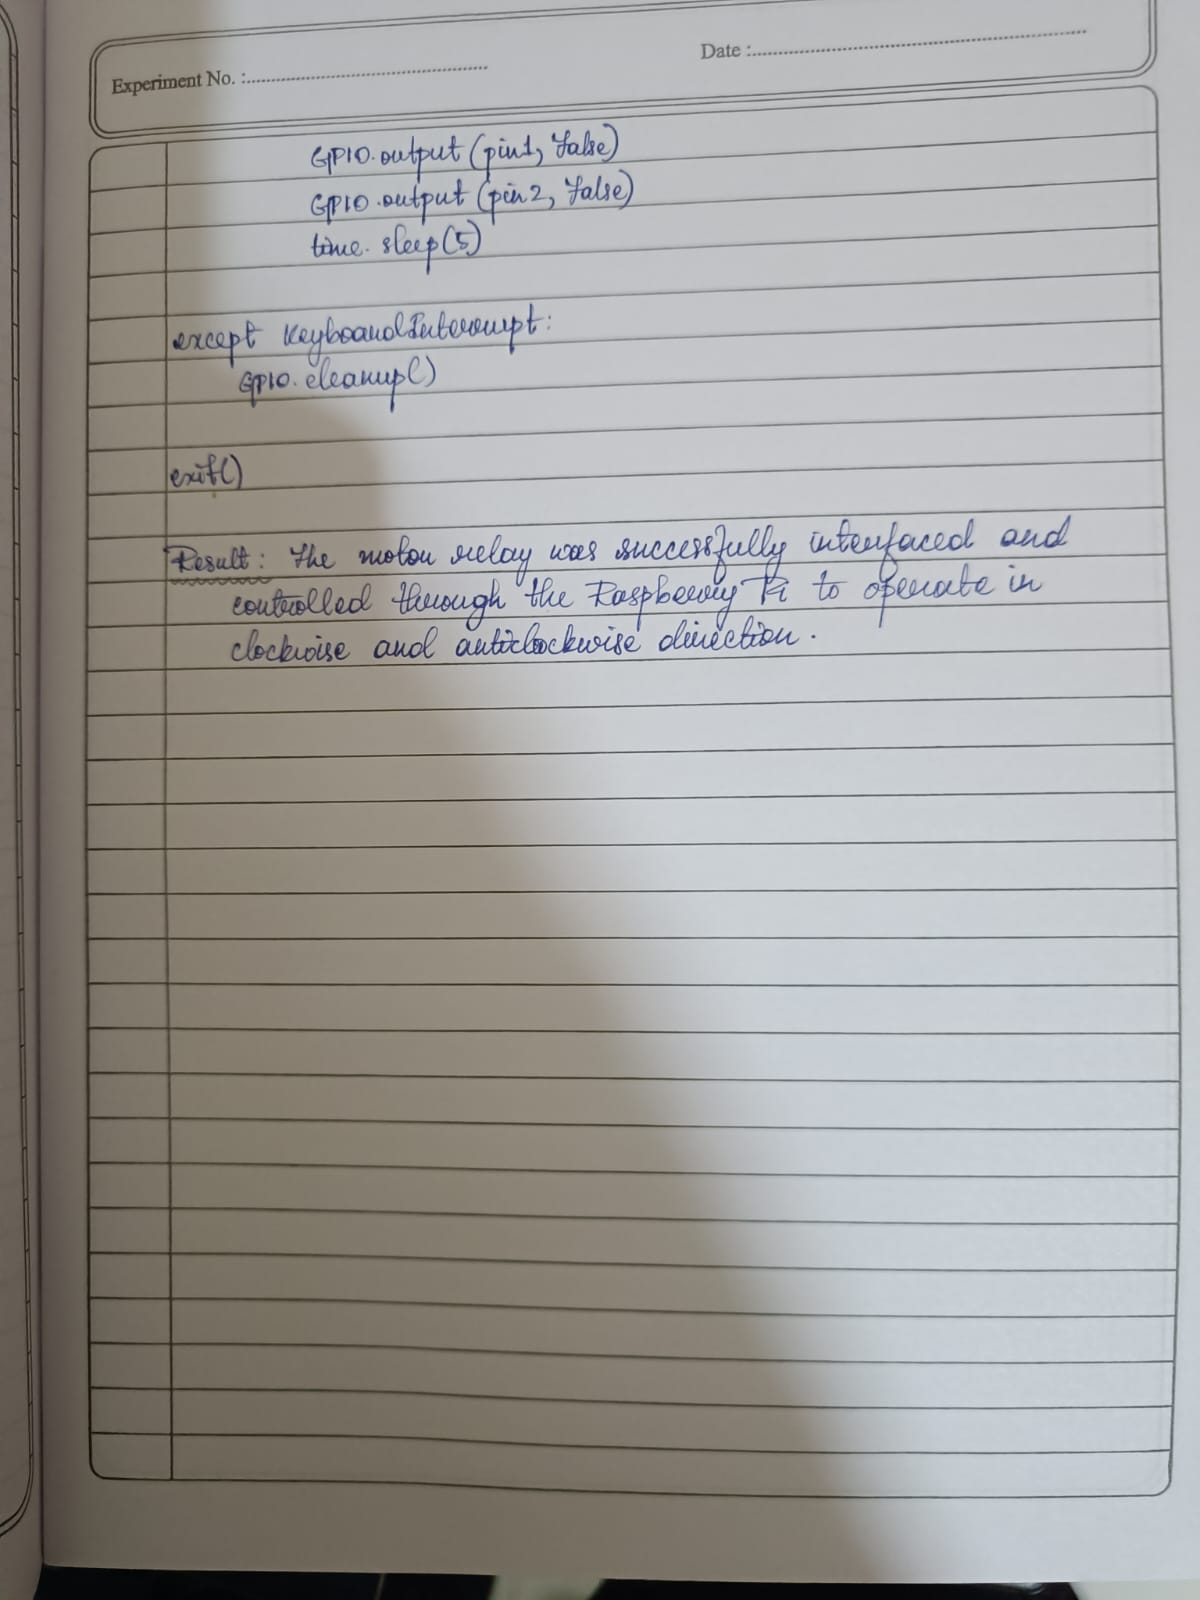 Experiment No. :
Date :
GPIO.output (pin1, False)
GPIO.output (pin2, False)
time.sleep(5)
except KeyboardInterrupt:
GPIO.cleanup()
exit()
Result: The motor relay was successfully interfaced and
controlled through the Raspberry Pi to operate in
clockwise and anticlockwise direction.